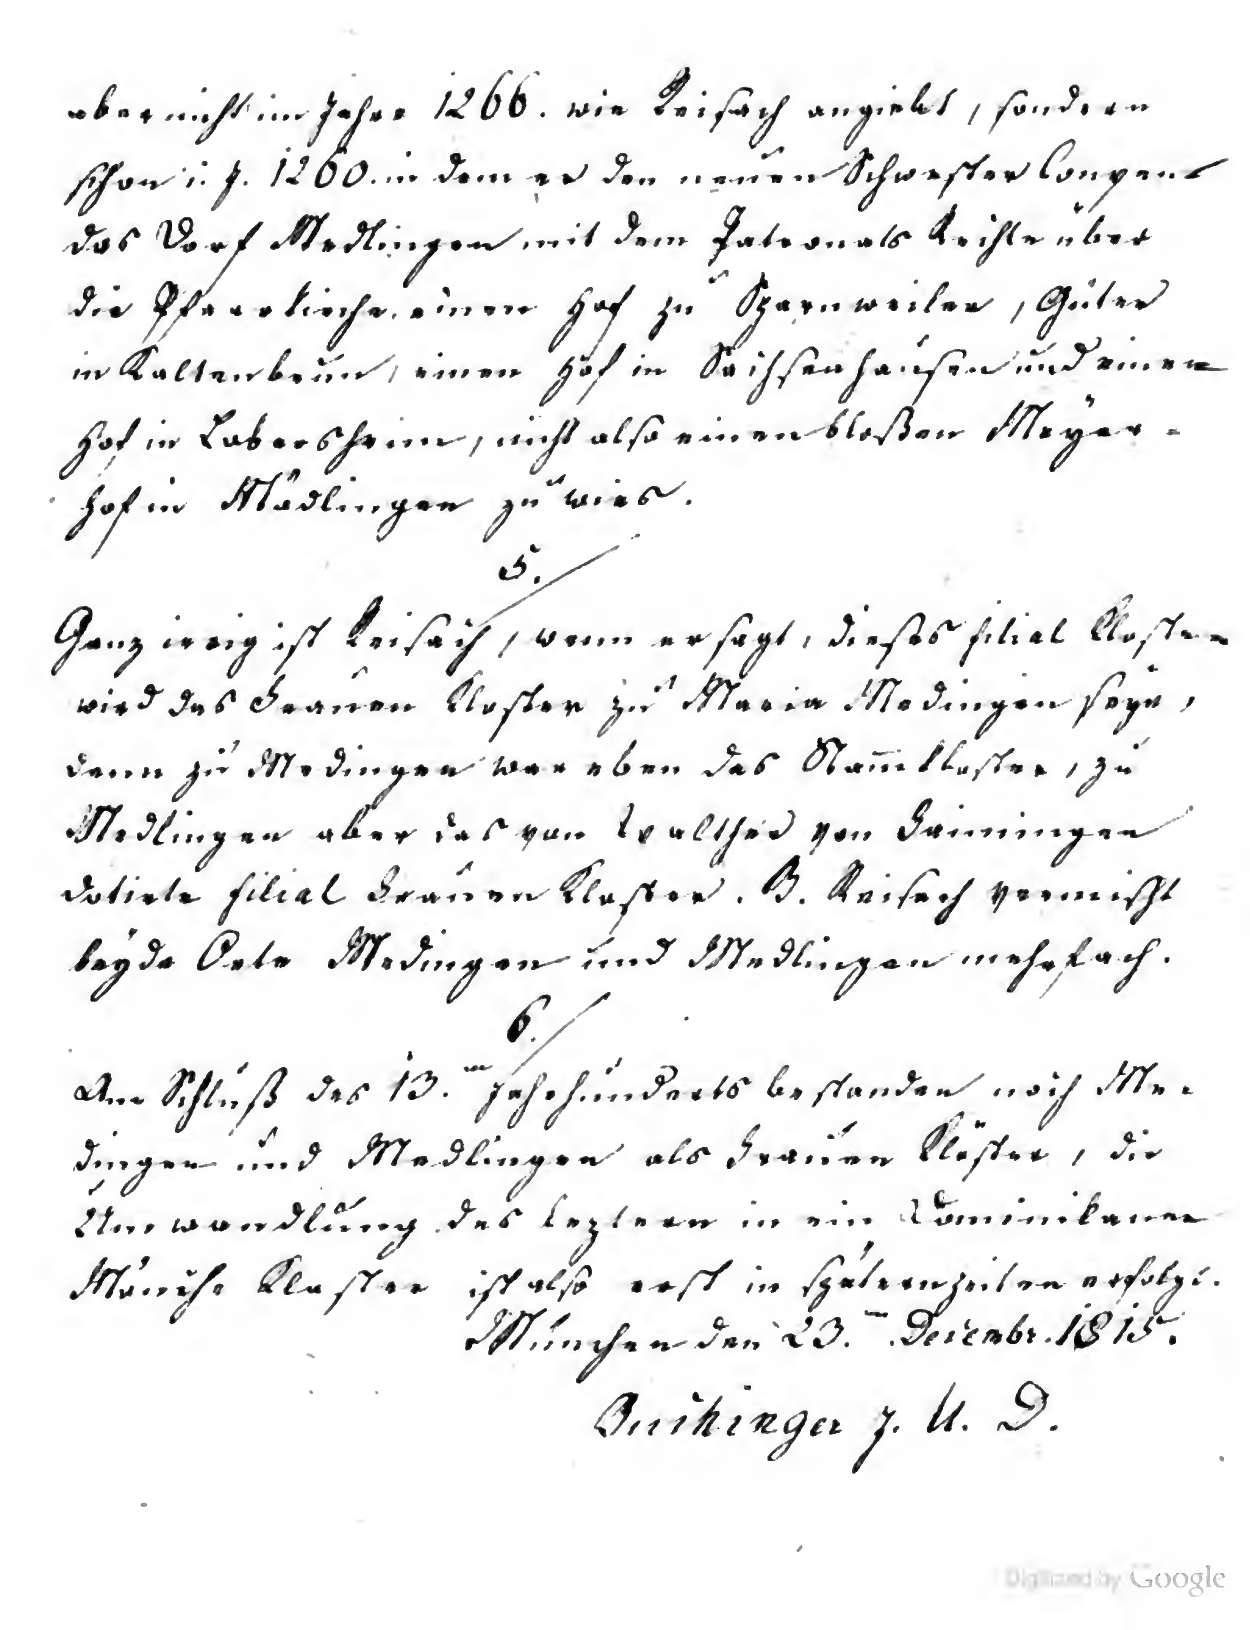 aber nicht im Jahre 1266. wie Reisach angiebt, sondern
schon i. J. 1260. in dem er den neuen Schwester Convent
das Dorf Medlingen mit dem Patronats Rechte über
die Pfarrkirche, einen Hof zu Sparnweiler, Güter
in Kaltenbrun, einen Hof in Sachsenhausen und einen
Hof in Lobersheim, nicht also einen bloßen Meyer-
hof in Mädlingen zu wies.
5./
Ganz irrig ist Reisach, wenn er sagt, dieses filial Kloster
wird das Frauen Kloster zu Maria Medingen seye,
denn zu Medingen war eben das Stam̅kloster, zu
Medlingen aber das von Walther von Faimingen
dotirte filial Frauen Kloster. B. Reisach vermischt
beyde Orte Medingen und Medlingen mehrfach.
6./
Am Schluß des 13.ten Jahrhunderts bestanden noch Me-
dingen und Medlingen als Frauen Klöster, die
Umwandlung des leztern in ein Dominikaner
Mönche Kloster ist also erst in spätern zeiten erfolgt.
München den 23.ten Decembr. 1815.
Buchinger J. U. D.
Digitized by Google